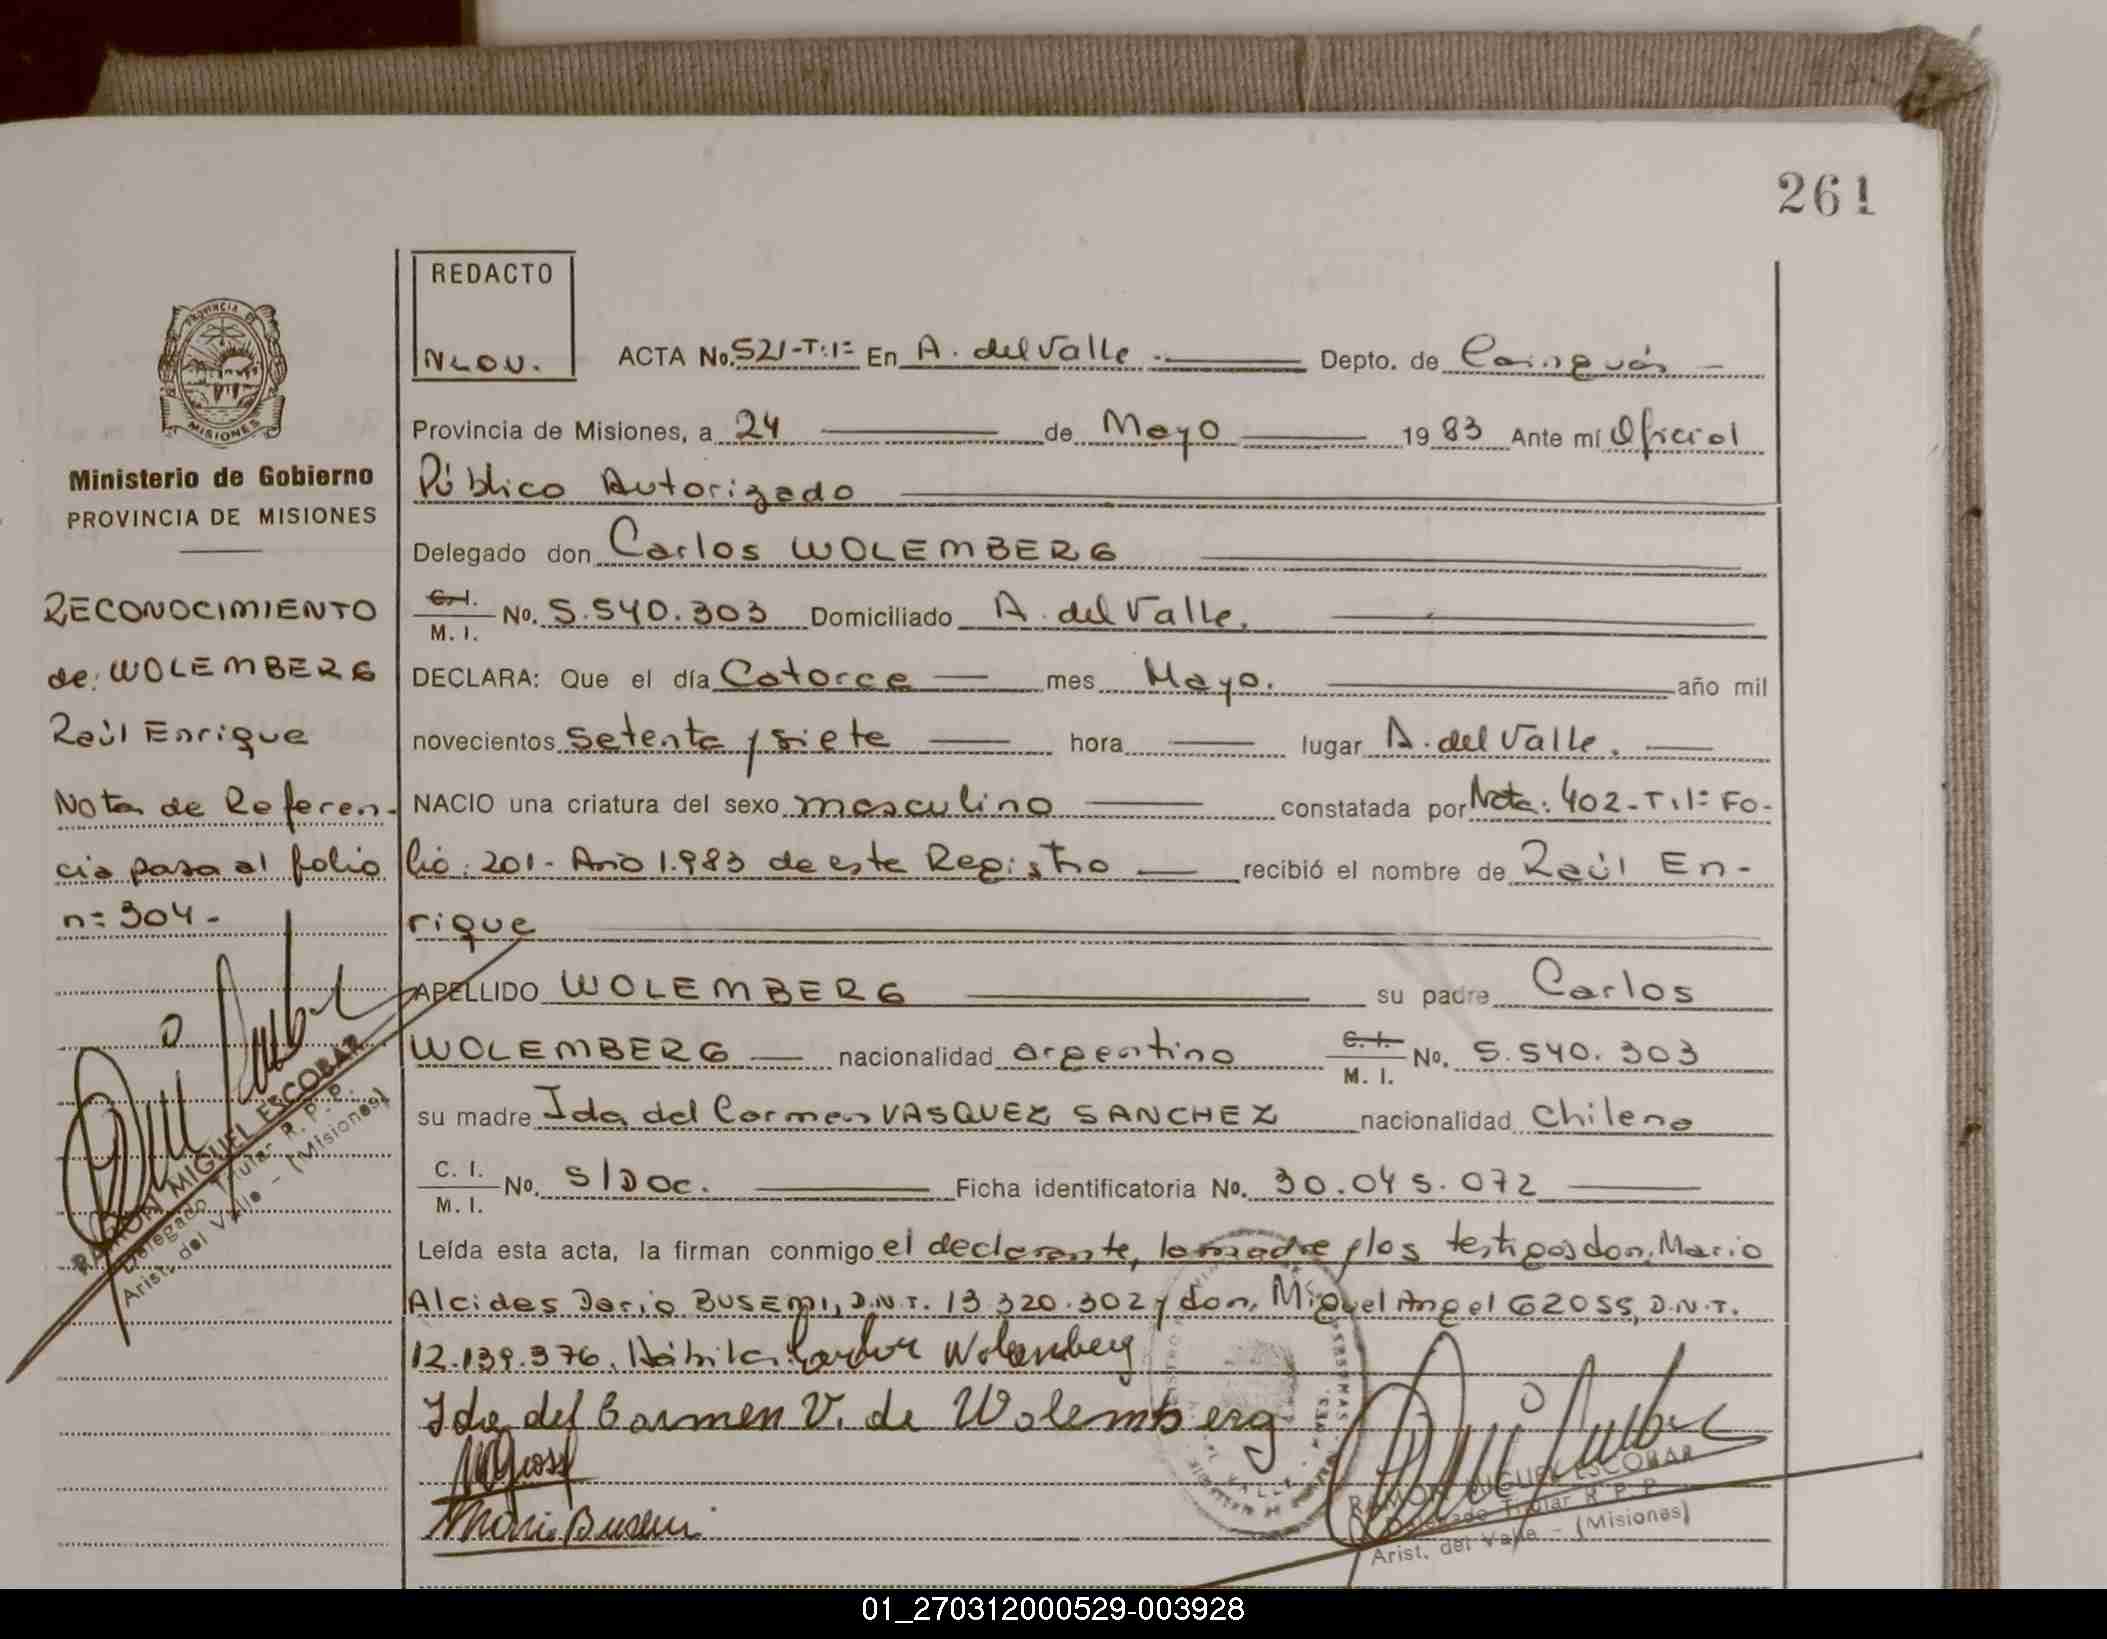 261
REDACTO
N.L.O.V.
ACTA No. 521-T:1= En A. del Valle Depto. de Cainguás
PROVINCIA DE
MISIONES
Provincia de Misiones, a 24 de Mayo 1983 Ante mí Oficial
Ministerio de Gobierno
Público Autorizado
PROVINCIA DE MISIONES
Delegado don Carlos WOLEMBERG
RECONOCIMIENTO
C.I. M. I. No. 5.540.303 Domiciliado A. del Valle.
de: WOLEMBERG
DECLARA: Que el día Catorce mes Mayo. año mil
Raúl Enrique
novecientos setenta y siete hora lugar A. del Valle.
Nota de Referen-
NACIO una criatura del sexo masculino constatada por Nota: 402-T.1= Fo-
cia pasa al folio
lio: 201- Año 1.983 de este Registro recibió el nombre de Raúl En-
n= 304-
rique
APELLIDO WOLEMBERG su padre Carlos
WOLEMBERG nacionalidad argentino C. I. M. I. No. 5.540.303
su madre Ida del Carmen VASQUEZ SANCHEZ nacionalidad Chilena
C. I. M. I. No. S/Doc. Ficha identificatoria No. 30.045.072
RAMON MIGUEL ESCOBAR
Delegado Titular R. P. P.
Arist. del Valle - (Misiones)
Leída esta acta, la firman conmigo el declarante, la madre y los testigos don, Mario
Alcides Dario BUSEMI, D.N.I. 13.320.302 y don, Miguel Angel GROSS, D.N.I.
12.139.376, Hábiles. Carlos Wolemberg
Ida del Carmen V. de Wolemberg
MGross
Mario Busemi
RAMON MIGUEL ESCOBAR
Delegado Titular R. P. P.
Arist. del Valle - (Misiones)
01_270312000529-003928